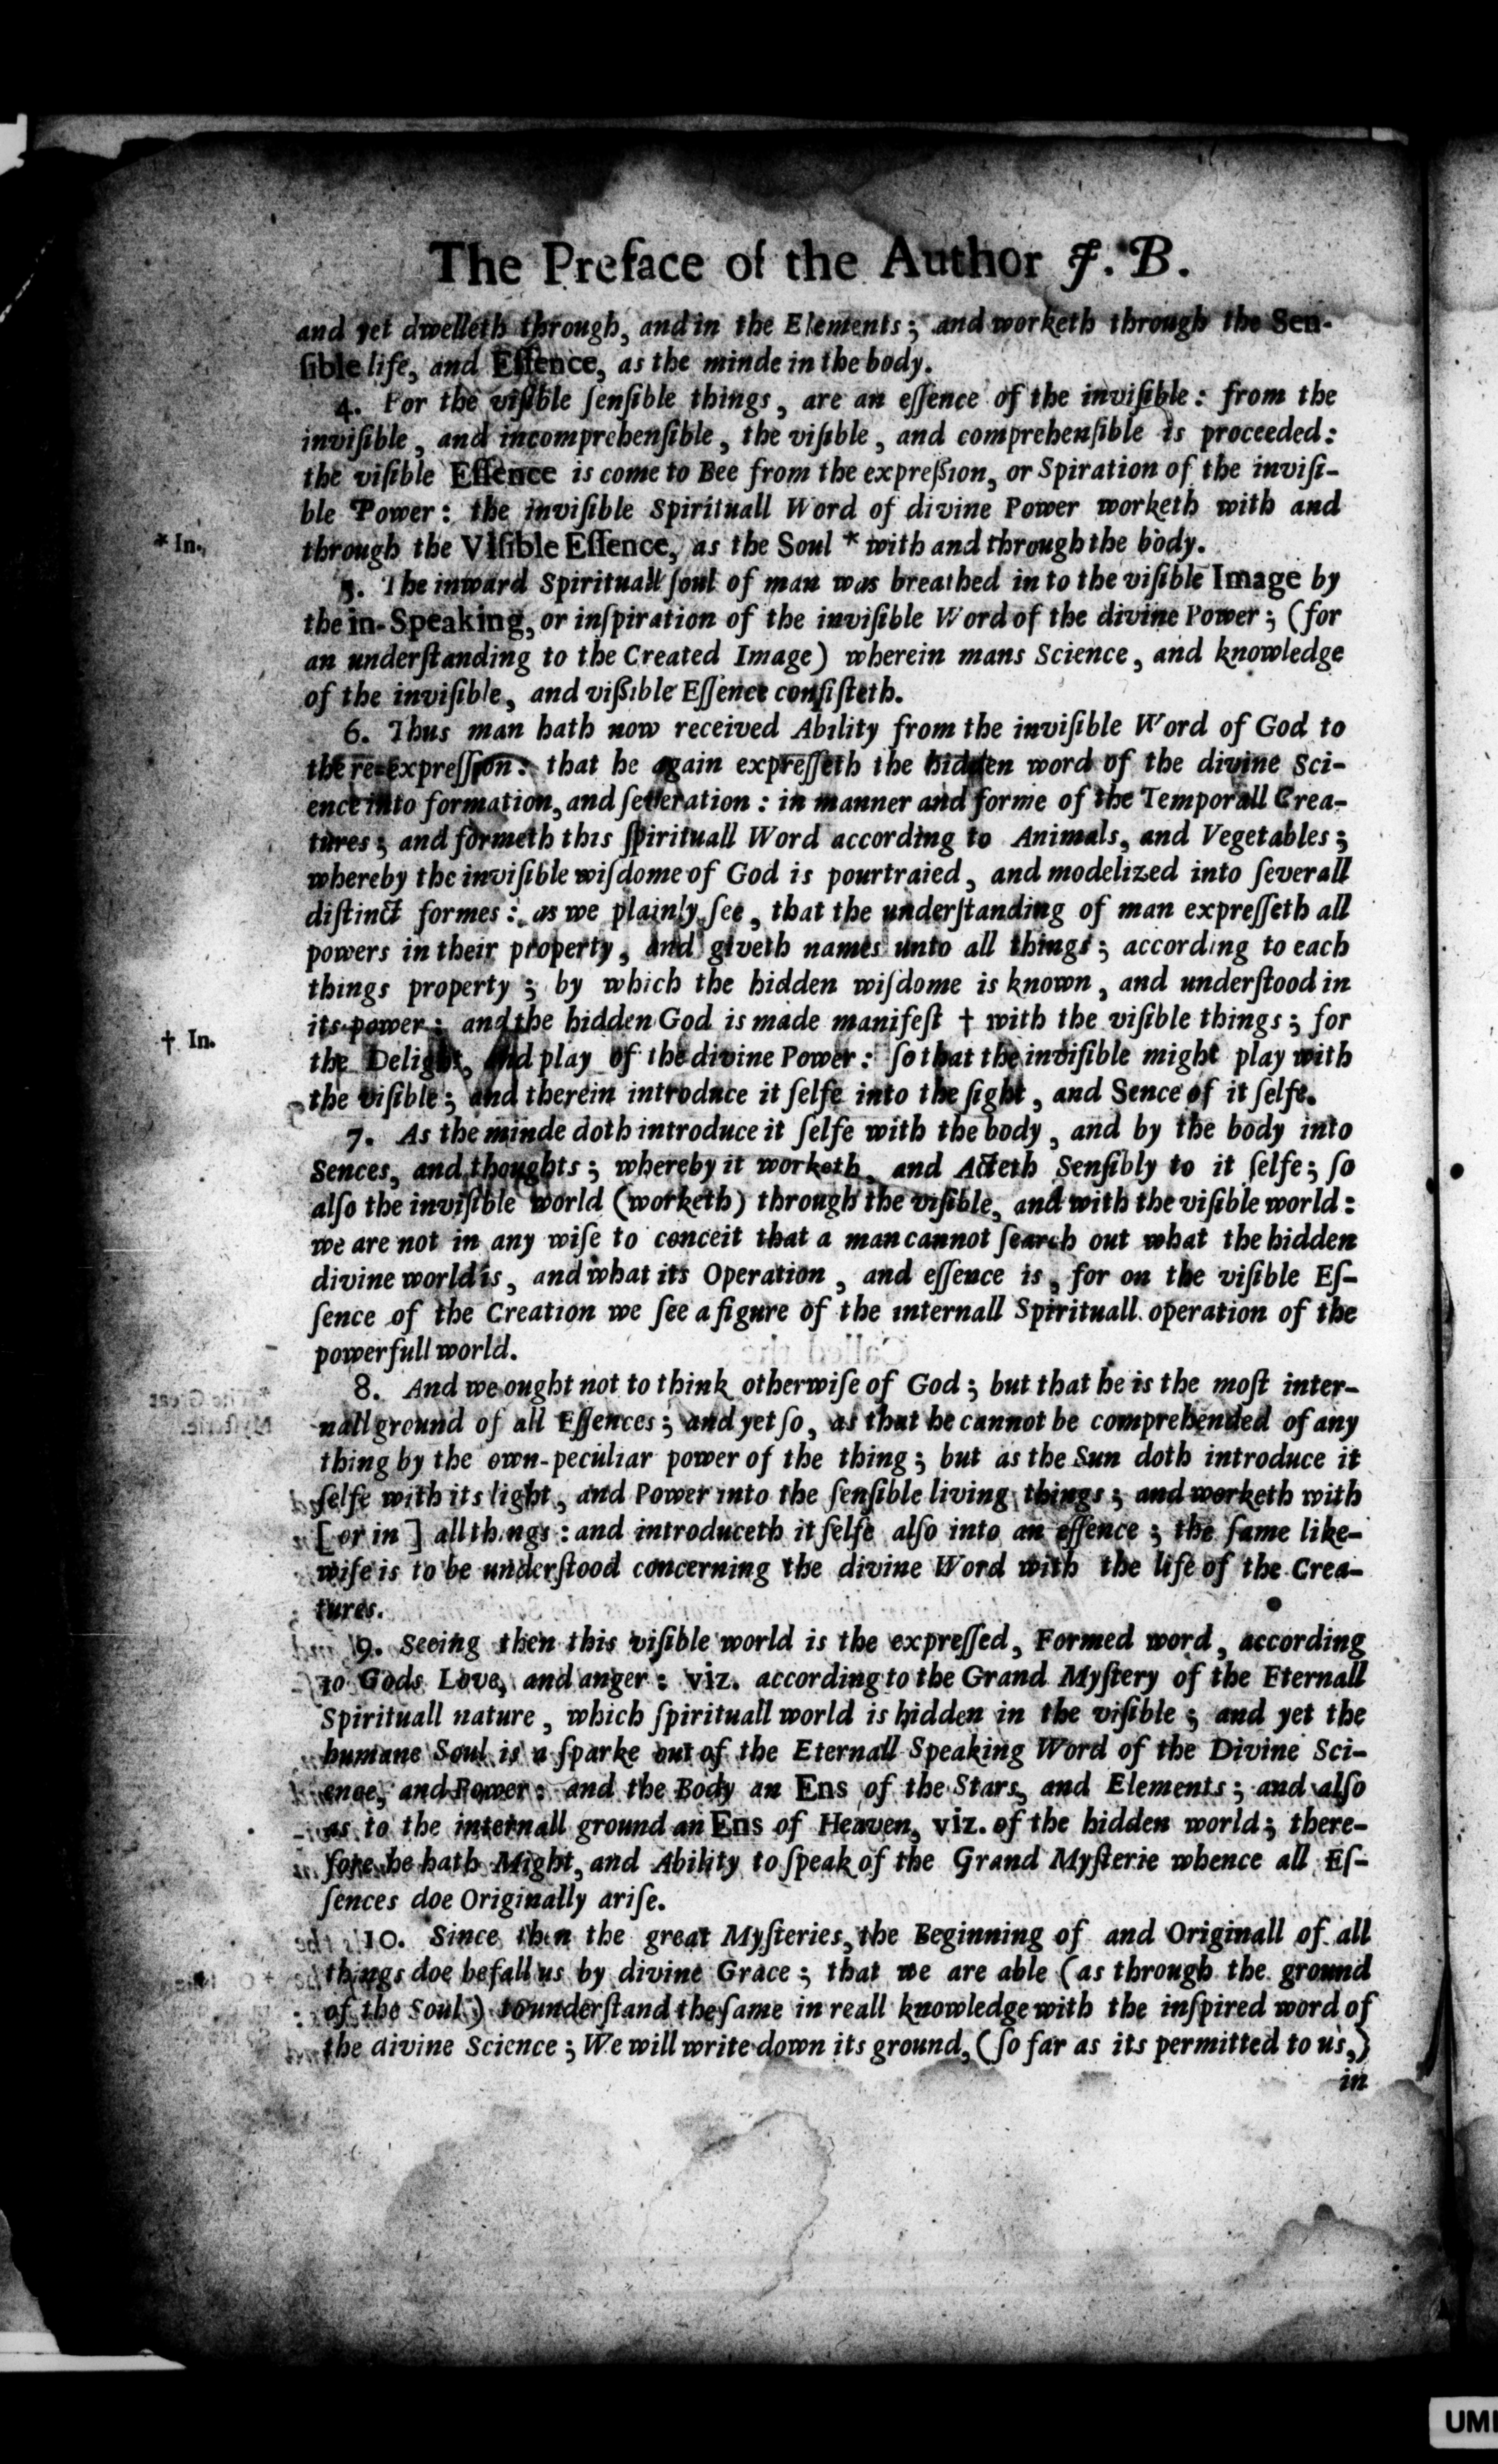 The Preface of the Author J. B.
and yet dwelleth through, and in the Elements; and worketh through the Sen-
ſible life, and Eſſence, as the minde in the body.
4. For the viſible ſenſible things, are an eſſence of the inviſible: from the
inviſible, and incomprehenſible, the viſible, and comprehenſible is proceeded:
the viſible Eſſence is come to Bee from the expreßion, or Spiration of the inviſi-
ble Power: the inviſible Spirituall Word of divine Power worketh with and
* In.
through the Viſible Eſſence, as the Soul * with and through the body.
5. The inward Spirituall ſoul of man was breathed in to the viſible Image by
the in-Speaking, or inſpiration of the inviſible Word of the divine Power; (for
an underſtanding to the Created Image) wherein mans Science, and knowledge
of the inviſible, and vißible Eſſence conſiſteth.
6. Thus man hath now received Ability from the inviſible Word of God to
the re-expreſſion: that he again expreſſeth the hidden word of the divine Sci-
ence into formation, and ſeveration: in manner and forme of the Temporall Crea-
tures; and formeth this ſpirituall Word according to Animals, and Vegetables;
whereby the inviſible wiſdome of God is pourtraied, and modelized into ſeverall
diſtinct formes: as we plainly ſee, that the underſtanding of man expreſſeth all
powers in their property, and giveth names unto all things; according to each
things property; by which the hidden wiſdome is known, and underſtood in
its power: and the hidden God is made manifeſt † with the viſible things; for
† In.
the Delight, and play of the divine Power: ſo that the inviſible might play with
the viſible; and therein introduce it ſelfe into the ſight, and Sence of it ſelfe.
7. As the minde doth introduce it ſelfe with the body, and by the body into
Sences, and thoughts; whereby it worketh, and Acteth Senſibly to it ſelfe; ſo
alſo the inviſible world (worketh) through the viſible, and with the viſible world:
we are not in any wiſe to conceit that a man cannot ſearch out what the hidden
divine world is, and what its Operation, and eſſence is, for on the viſible Eſ-
ſence of the Creation we ſee a figure of the internall Spirituall operation of the
powerfull world.
8. And we ought not to think otherwiſe of God; but that he is the moſt inter-
nall ground of all Eſſences; and yet ſo, as that he cannot be comprehended of any
thing by the own-peculiar power of the thing; but as the Sun doth introduce it
ſelfe with its light, and Power into the ſenſible living things; and worketh with
[or in] all things: and introduceth it ſelfe alſo into an eſſence; the ſame like-
wiſe is to be underſtood concerning the divine Word with the life of the Crea-
tures.
9. Seeing then this viſible world is the expreſſed, Formed word, according
to Gods Love, and anger: viz. according to the Grand Myſtery of the Eternall
Spirituall nature, which ſpirituall world is hidden in the viſible; and yet the
humane Soul is a ſparke out of the Eternall Speaking Word of the Divine Sci-
ence, and Power: and the Body an Ens of the Stars, and Elements; and alſo
as to the internall ground an Ens of Heaven, viz. of the hidden world; there-
fore he hath Might, and Ability to ſpeak of the Grand Myſterie whence all Eſ-
ſences doe Originally ariſe.
10. Since then the great Myſteries, the Beginning of and Originall of all
things doe befall us by divine Grace; that we are able (as through the ground
of the Soul) to underſtand the ſame in reall knowledge with the inſpired word of
the divine Science; We will write down its ground, (ſo far as its permitted to us,)
in
UMI